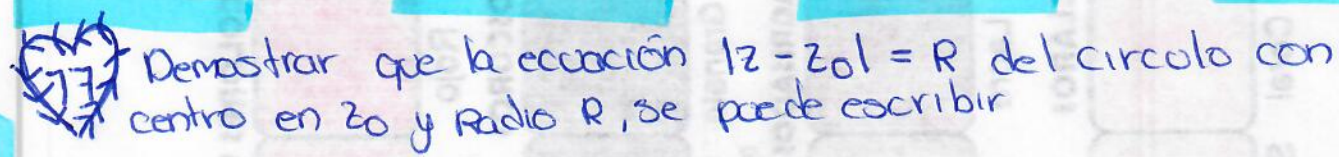 77 Demostrar que la ecuación |z - z₀| = R del circulo con
centro en z₀ y Radio R, se puede escribir